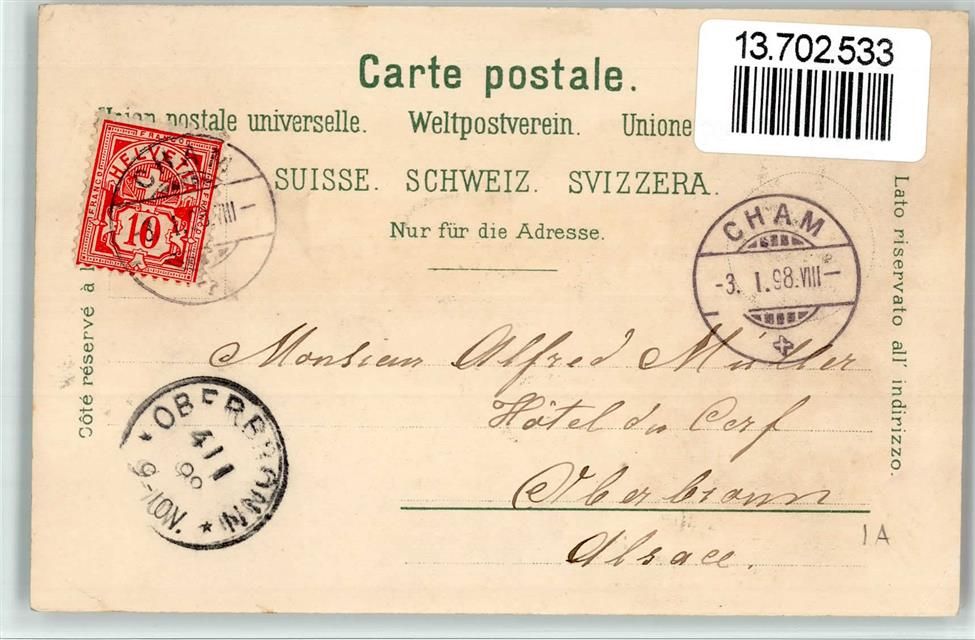 13.702.533
Carte postale.
Union postale universelle. Weltpostverein. Unione
SUISSE. SCHWEIZ. SVIZZERA.
Nur für die Adresse.
Côté réservé à
Lato riservato all' indirizzo.
FRANCO
FRANCO
HELVETIA
10
CHAM
-3. I.98.VIII-
Monsieur Alfred Muller
Hôtel du Cerf
Oberbronn
Alsace.
* OBERBRONN *
4 1 1
98
9-11 V.
1A